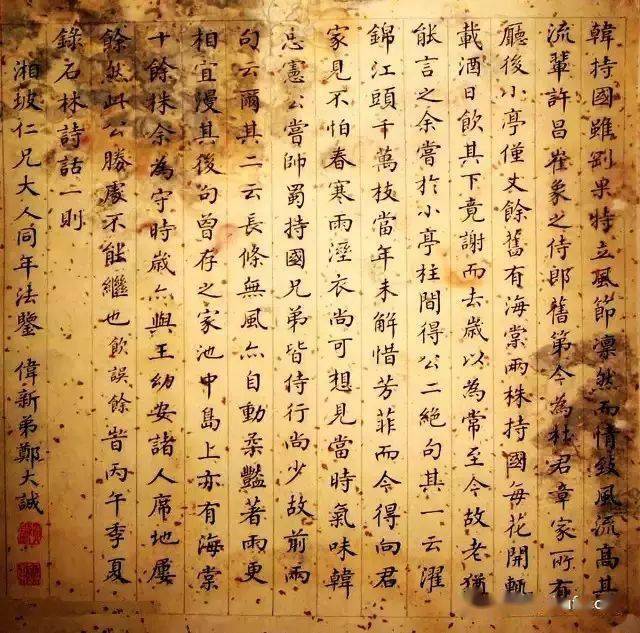 韓持國雖剛果特立風節凜然而情致風流高其
流輩許昌崔象之侍郎舊第今為杜君章家所有
廳後小亭僅丈餘舊有海棠兩株持國每花開輒
載酒日飲其下竟謝而去歲以為常至今故老猶
能言之余嘗於小亭柱間得公二絕句其一云濯
錦江頭千萬枝當年未解惜芳菲而今得向君
家見不怕春寒雨溼衣尚可想見當時氣味韓
忠憲公嘗師蜀持國兄弟皆侍行尚少故前兩
句云爾其二云長條無風亦自動柔豔著雨更
相宜漫其後句曾存之家池中島上亦有海棠
十餘株余為守時歲亦與王幼安諸人席地屢
飲然此公勝處不能繼也飲誤餘 旹丙午季夏
錄石林詩話一則
湘坡仁兄大人同年法鑒 偉新弟鄭大誠